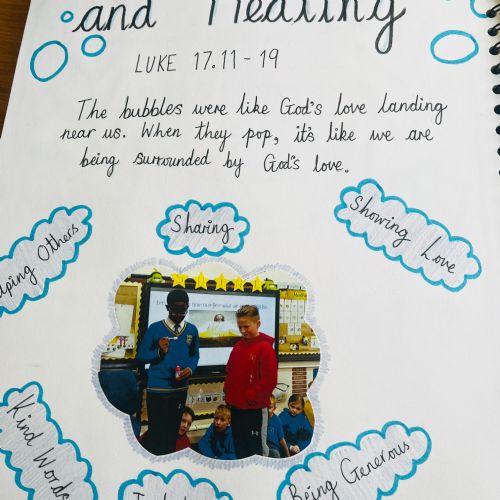 and Healing
LUKE 17.11-19
The bubbles were like God's love landing
near us. When they pop, it's like we are
being surrounded by God's love.
Sharing
Showing Love
Others
Kind Words
Being Generous